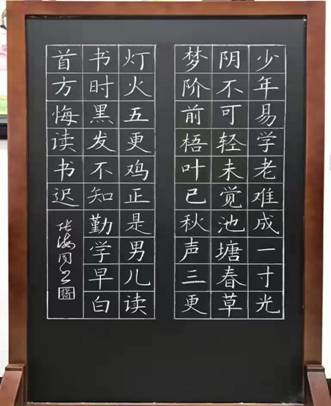 少年易学老难成一寸光
阴不可轻未觉池塘春草
梦阶前梧叶已秋声三更
灯火五更鸡正是男儿读
书时黑发不知勤学早白
首方悔读书迟